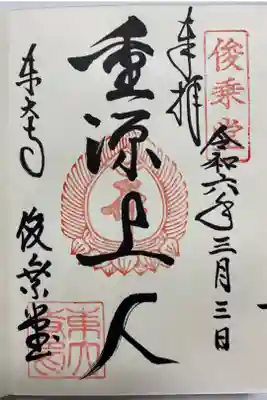 奉拝
俊乗堂
令和六年三月三日
重源上人
東大寺
俊乗堂